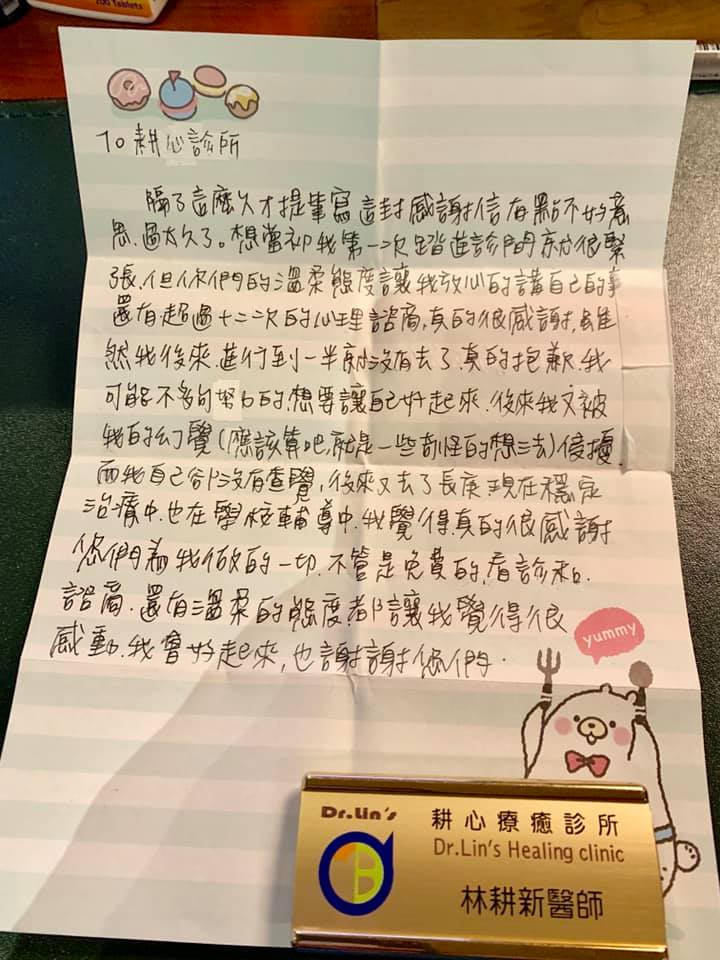 200 Tablets
To 耕心診所
隔了這麼久才提筆寫這封感謝信有點不好意
思.過太久了。想當初我第一次踏進診間亦分很緊
張,但你們的溫柔態度讓我放心的講自己的事
還有超過十二次的心理諮商,真的很感謝,雖
然我後來進行到一半就沒有去了.真的抱歉.我
可能不夠努力的,想要讓自己好起來.後來我又被
我的幻覺(應該算吧,就是一些奇怪的想法)侵擾.
而我自己卻沒有查覺,後來又去了長庚.現在穩定
治療中.也在學校輔導中.我覺得真的很感謝
你們為我做的一切.不管是免費的,看診和.
諮商.還有溫柔的態度都讓我覺得很
感動.我會好起來,也謝謝你們.
yummy
Dr.Lin's
耕心療癒診所
Dr.Lin's Healing clinic
林耕新醫師